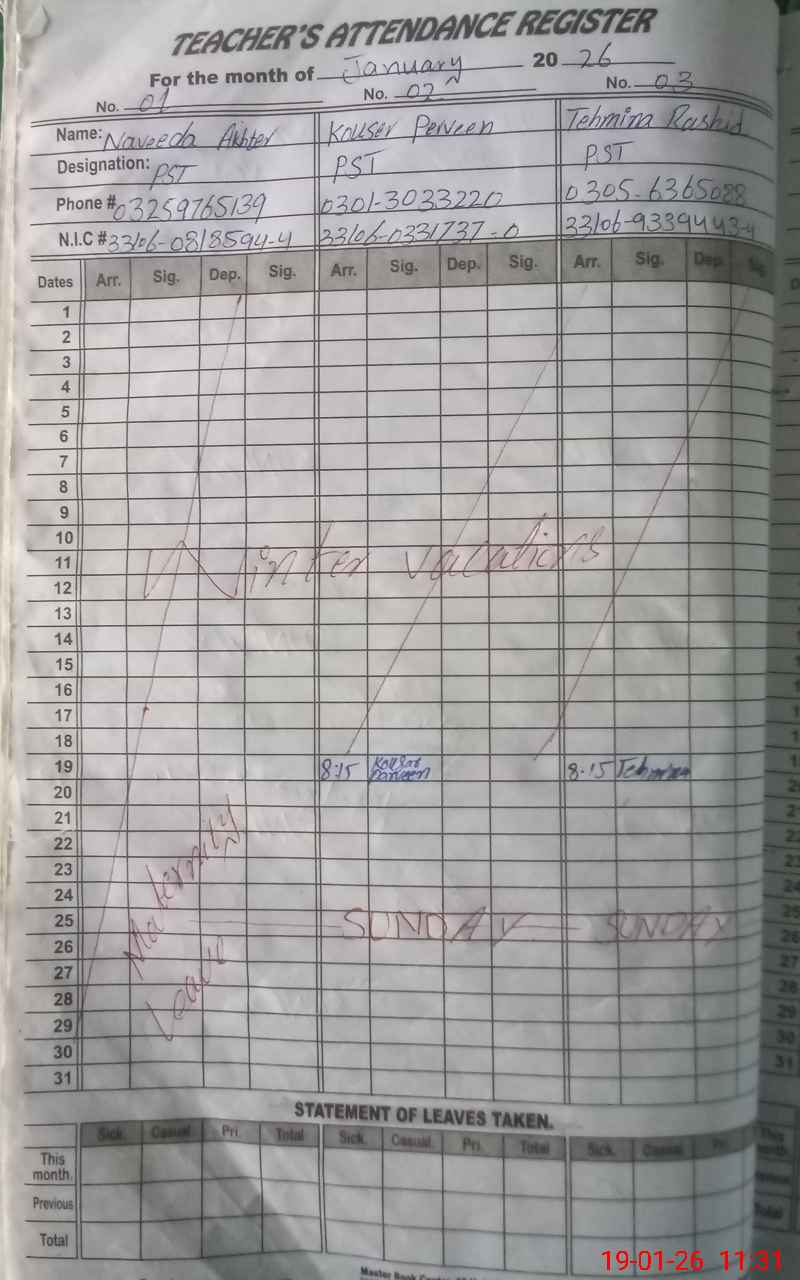 TEACHER'S ATTENDANCE REGISTER
For the month of January 20 26
No. 01 No. 02 No. 03
Name: Naveeda Akhter Kouser Perveen Tehmina Rashid
Designation: PST PST PST
Phone # 03259765139 0301-3033220 0305-6365088
N.I.C # 33106-0818594-4 33106-0331737-0 33106-9339443-4
Dates Arr. Sig. Dep. Sig. Arr. Sig. Dep. Sig. Arr. Sig. Dep. Sig
1
2
3
4
5
6
7
8
9
10
11 Winter vacations
12
13
14
15
16
17
18
19 8:15 Kousar Parveen 8.15 Tehmina
20
21
22
23
24
Maternity
25 SUNDAY SUNDAY
26
27
Leave
28
29
30
31
STATEMENT OF LEAVES TAKEN.
Sick. Casual. Pri. Total Sick. Casual. Pri. Total Sick. Casual. Pri.
This month.
Previous
Total
Master Book
19-01-26 11:31